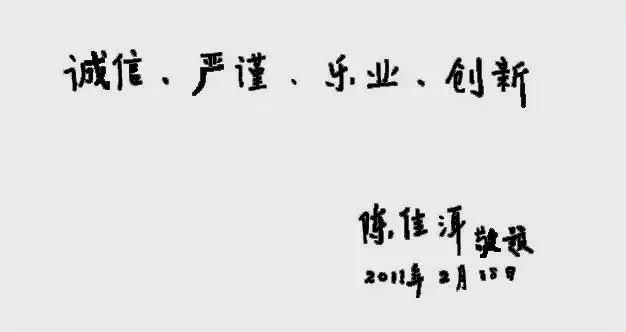 诚信、严谨、乐业、创新
陈佳洱 敬题
2011年2月18日